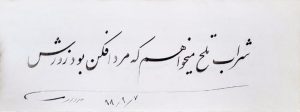 شراب تلخ میخواهم که مرد افکن بود زورش
۹۸/۱/۷